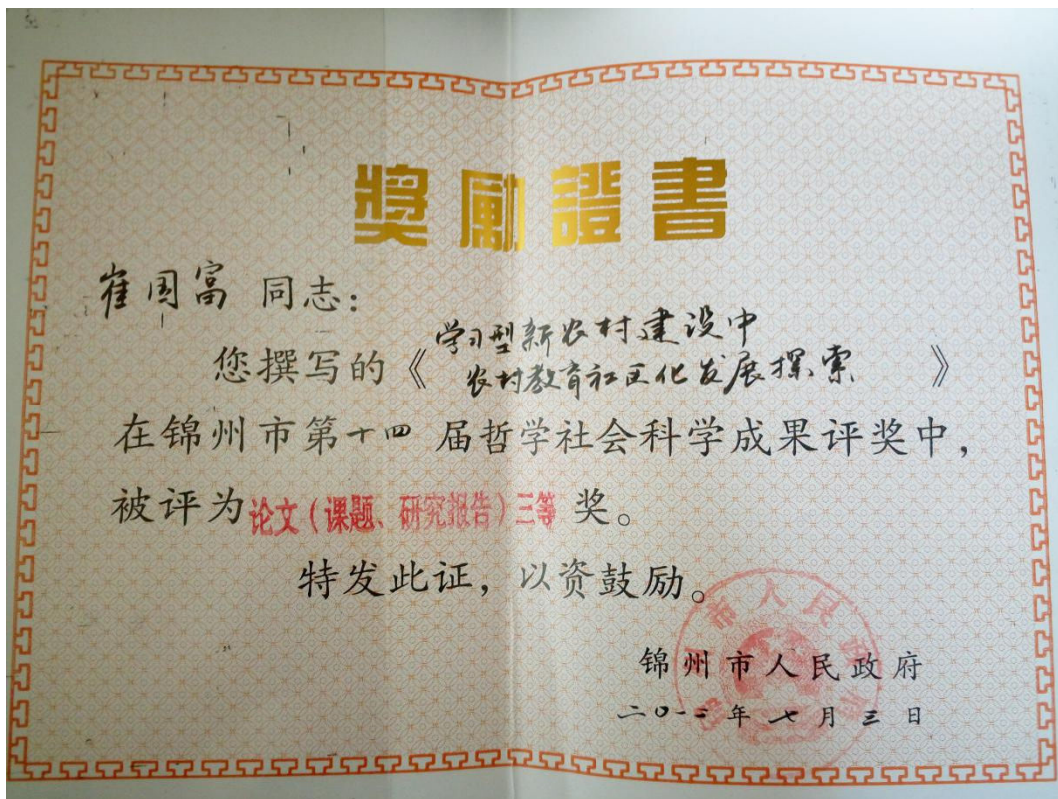 獎勵證書
崔国富 同志:
学习型新农村建设中
您撰写的《农村教育社区化发展探索》
在锦州市第十四届哲学社会科学成果评奖中,
被评为论文(课题、研究报告)三等奖。
特发此证,以资鼓励。
锦州市人民政府
二〇一二年七月三日